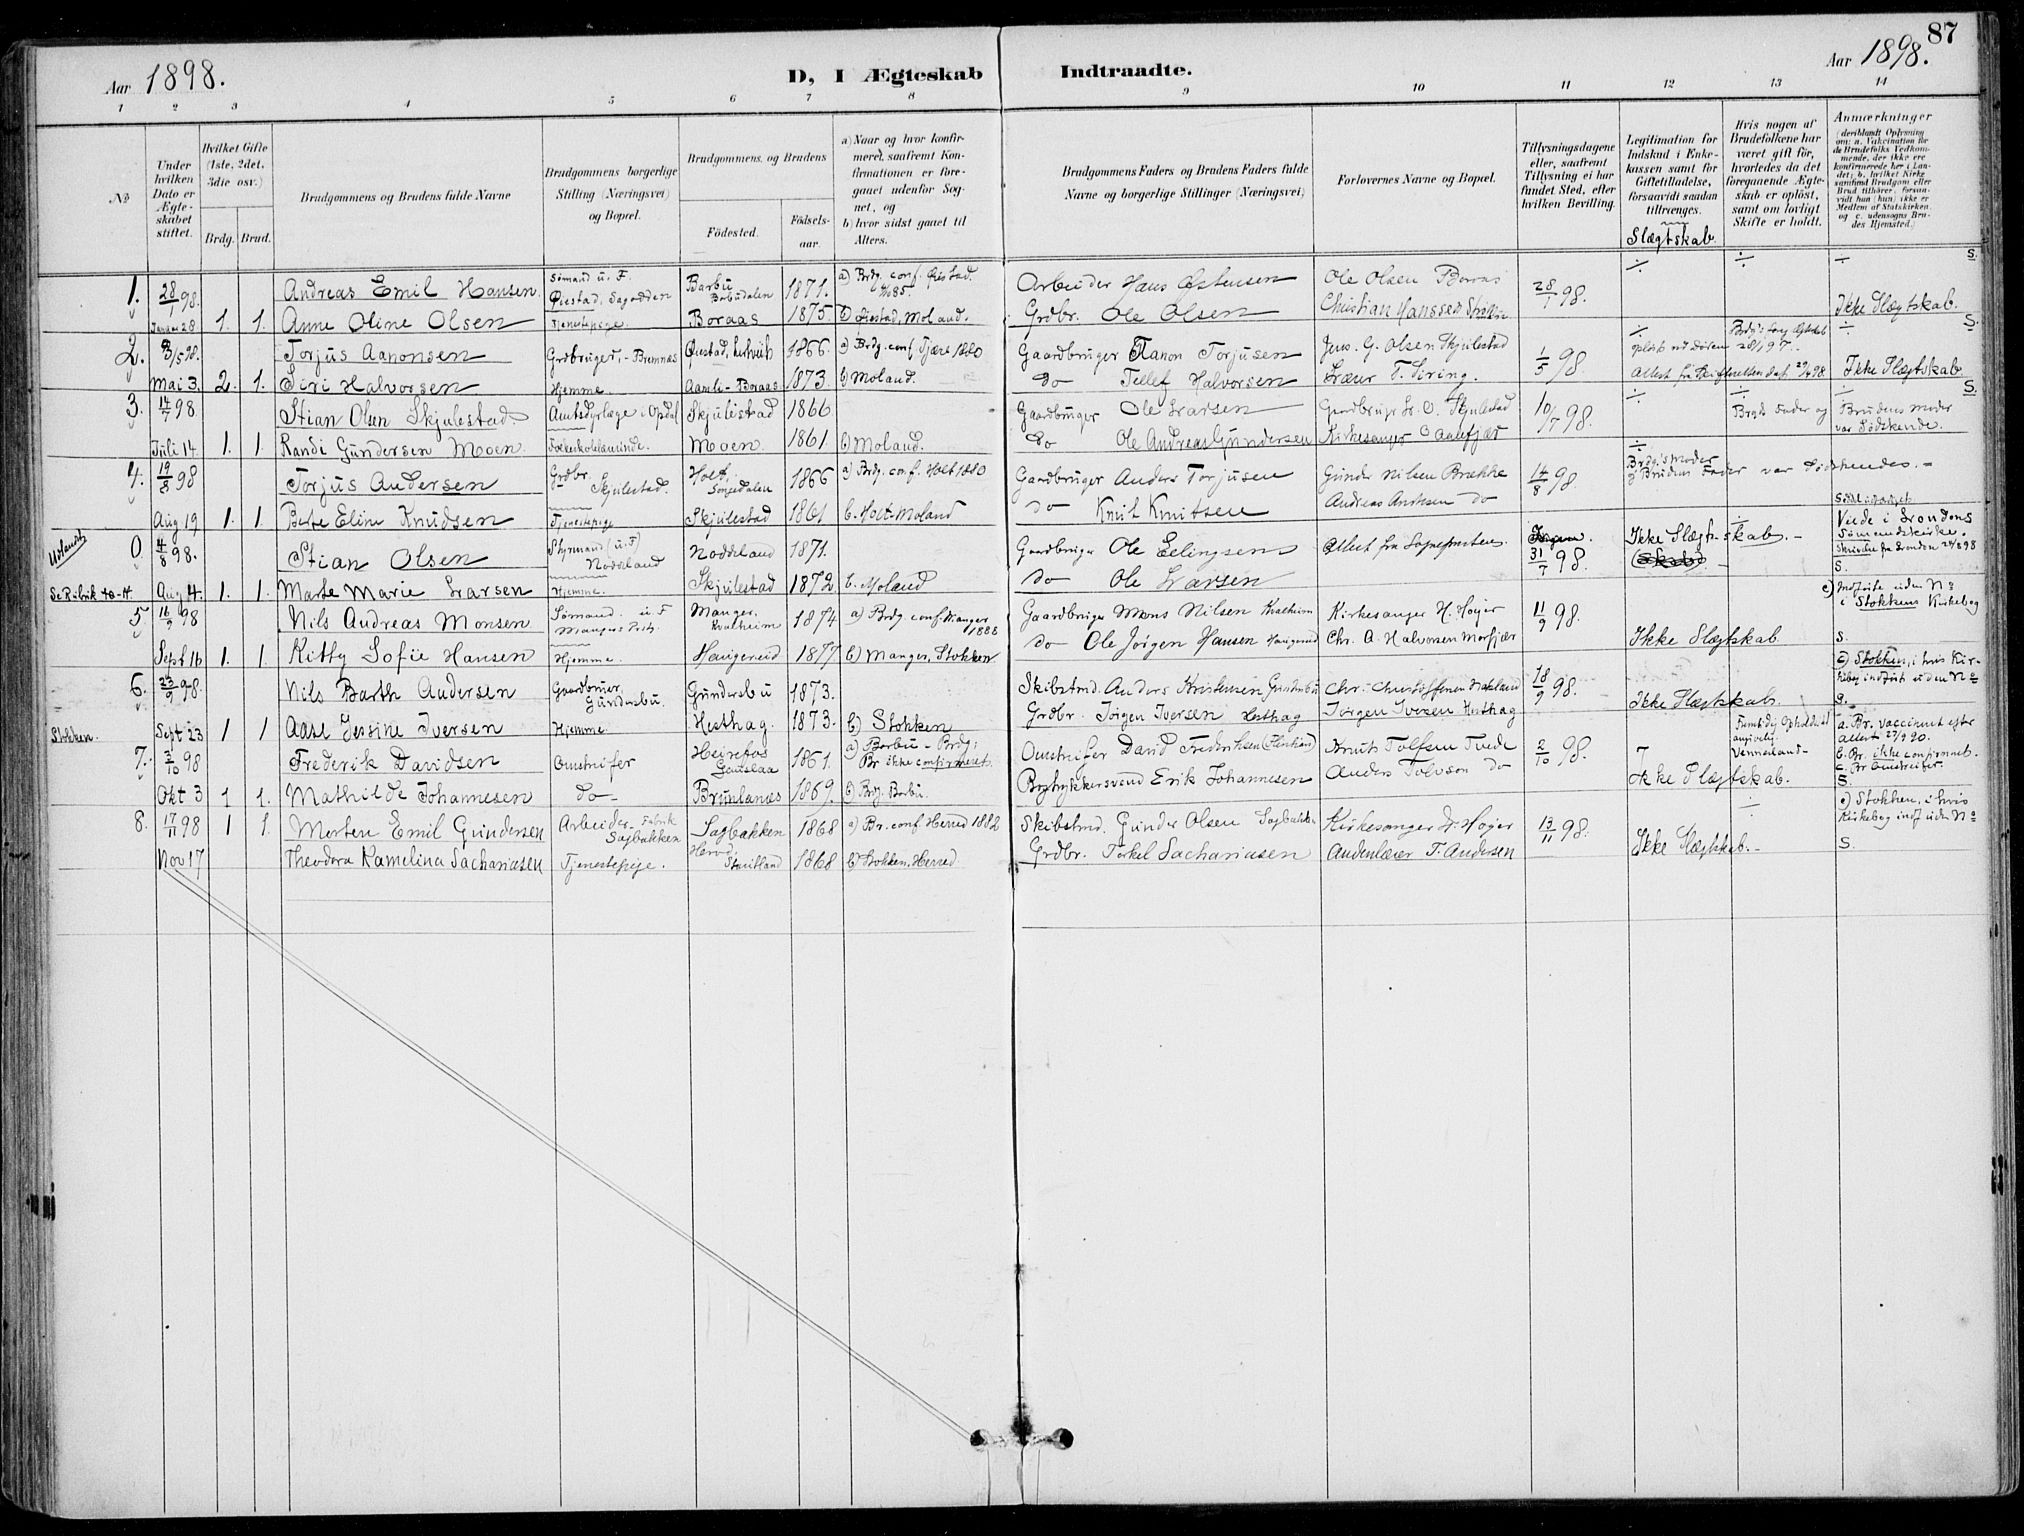 87
Aar 1898.
D, I Ægteskab Indtraadte.
Aar 1898.
1 2 3 4 5 6 7 8 9 10 11 12 13 14
No
Under hvilken Dato er Ægteskabet stiftet.
Hvilket Gifte (1ste, 2det, 3die osv.)
Brdg. Brud.
Brudgommens og Brudens fulde Navne
Brudgommens borgerlige Stilling (Næringsvei) og Bopæl.
Brudgommens og Brudens
Födested. Födselsaar.
a) Naar og hvor konfirmeret, saafremt Konfirmationen er foregaaet udenfor Sognet, og
b) hvor sidst gaaet til Alters.
Brudgommens Faders og Brudens Faders fulde Navne og borgerlige Stillinger (Næringsvei)
Forlovernes Navne og Bopæl.
Tillysningsdagene eller, saafremt Tillysning ei har fundet Sted, efter hvilken Bevilling.
Legitimation for Indskud i Enkekassen samt for Giftetilladelse, forsaavidt saadan tiltrænges.
Slægtskab
Hvis nogen af Brudefolkene har været gift för, hvorledes da det foregaaende Ægteskab er oplöst, samt om lovligt Skifte er holdt.
Anmærkninger
(deriblandt Oplysning om: a. Vakcination for de Brudefolks Vedkommende, der ikke ere konfirmerede her i Landet; b. hvilket Kirkesamfund Brudgom eller Brud tilhører, forsaavidt han (hun) ikke er Medlem af Statskirken, og c. udensogns Brudes Hjemsted.)
1. 28/1 98. Andreas Emil Hansen. Sömand u. F. Øiestad, Sagodden Barbu Barbudalen 1871. a) Brdg. conf. Øiestad 85. Arbeider Hans Østensen Ole Olsen Boraas 28/1 98. ÷ ÷ ÷ S.
Januar 28 1. 1. Anne Oline Olsen Tjenestepige. Boraas 1875. b) Øiestad, Moland. Grdbr. Ole Olsen Christian Hanssen Ikke Slægtskab.
2. 3/5 98. Torjus Aanonsen Grdbruger, - Bremnæs Øiestad, 1866. a) Brdg. conf. Tjære 1880 Gaardbruger Aanon Torjusen Jens. G. Olsen Skjulestad 1/5 98 ÷ ÷ S.
Mai 3. 2. 1. Siri Halvorsen Hjemme. Aamli - Boraas 1873. b) Moland. do Tellef Halvorsen Lærer T. Siring. Attest fra Skifteretten 29/4 98 Ikke Slægtskab
3. 14/7 98. Stian Olsen Skjulestad. Amtsdyrlæge i Opdal Skjulestad 1866 Gaardbruger Ole Larsen Gaardbruger L. O. Skjulestad 10/7 98. ÷ Brgds Fader og Brudens moder var Södskende. S
Juli 14 1. 1. Randi Gundersen Moen. Folkeskolelærerinde. Moen. 1861. b) Moland. do Ole Andreas Gundersen Kirkesanger
4. 19/8 98 Torjus Andersen Grdbr. Skjulestad. Holt, Songedalen 1866 a) Brdg. conf. Holt 1880 Gaardbruger Anders Torjusen Gunder Nilsen Brække 14/8 98 ÷ Brdg's moder og Brudens Fader var Södskende. -
Aug 19 1. 1. Berte Eline Knudsen Tjenestepige Skjulestad 1861 b. Holt - Moland do Knut Knutsen Andreas Andersen do
Udlandet 0 4/8 98. Stian Olsen Styrmand (u. F) Nodeland Nodeland 1871. Gaardbruger Ole Eelingsen Attest fra Sognepresten 31/7 98. Ikke Slægt-skab. - Viede i Londons Sömandskirke. Skrivelse fra London 24/8 98 S.
Se Rubrik Aug 4. 1. 1. Marte Marie Larsen Hjemme. Skjulestad 1872 b. Moland do Ole Larsen
5 16/9 98 Nils Andreas Monsen Sömand u. F Manger Manger, Kvalheim 1874 a) Brdg. conf. Manger 1888 Gaardbruger Mons Nilsen Kvalheim Kirkesanger H. Højer 11/9 98. c) Indförte uden No i Stokkens Kirkebog
Sept 16 1. 1. Kitty Sofie Hansen Hjemme. Haugerud 1877 b) Manger, Stokken do Ole Jörgen Hansen Haugerud Chr. A. Halvorsen Morfjær Ikke Slægtskab S.
6. 23/9 98. Nils Barth Andersen Gaardbruer, Gundersbu. Gundersbu 1873. Skibstmd. Anders Kristensen Gundersbu Chr. Christoffersen 18/9 98. Ikke Slægtskab. c) Stokken, i hvis Kirkebog indfört uden No S.
Stokken. Sept 23 1 1 Aase Jensine Iversen Hjemme. Hesthag. 1873. b) Stokken Grdbr. Jörgen Iversen Hesthag Jörgen Iversen Hesthag
7. 3/10 98 Frederik Davidsen Omstreifer 1861. a) Barbu - Brdg: Br ikke confirmeret. Omstreifer David Frederiksen Knut Tolfsen Tvede 2/10 98. a. Br. vaccineret efter attest 27/9 90. b. Br. ikke confirmeret. c. Br Omstreifer.
Okt 3 1 1. Mathilde Johannesen do- Brunlanæs 1869. b) Brdg. Barbu. Bogtrykkersvend Erik Johannesen Anders Tolvson do Ikke Slægtskab. S.
8. 17/11 98 1 1. Morten Emil Gundersen Arbeider Fabrik Sagbakken Sagbakken 1868 a) Br. conf. Herred 1882 Skibstmd. Gunder Olsen Sagbakken Kirkesanger H. Højer 13/11 98. ÷ c) Stokken, i hvis Kirkebog indf uden No
Nov 17 Theodora Kamelina Sachariasen Tjenestepige. Herred: 1868 b) Stokken, Herred Grdbr. Torkel Sachariasen Andenlærer T. Andersen Ikke Slægtskab. - S.